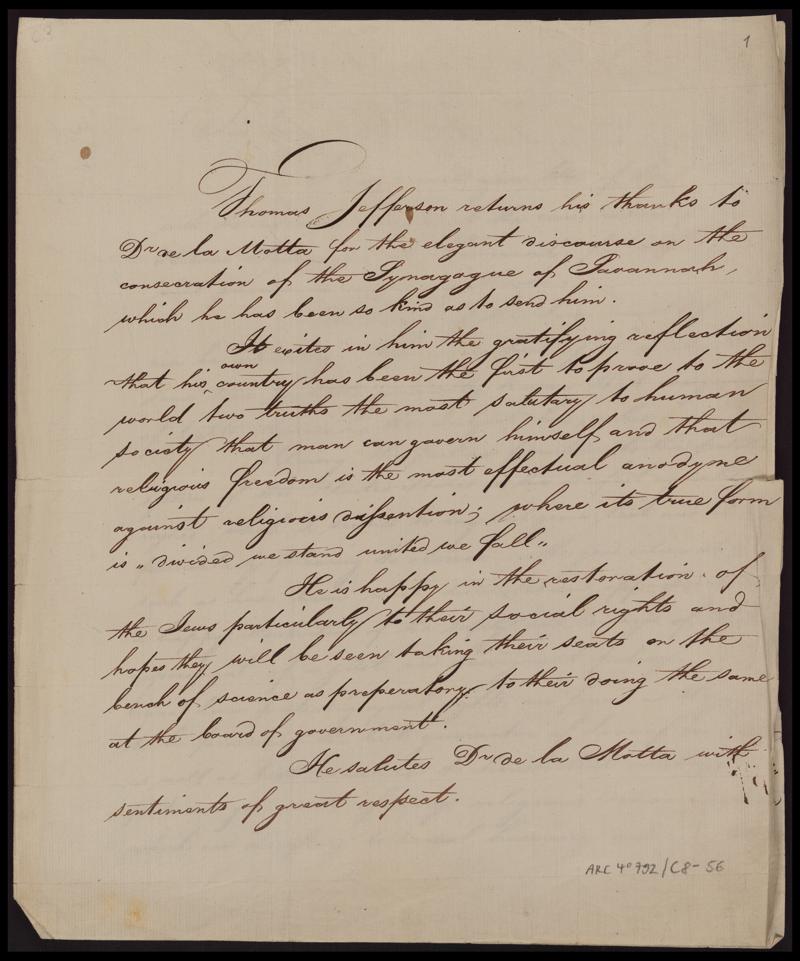 1
Thomas Jefferson returns his thanks to
Dr de la Motta for the elegant discourse on the
consecration of the Synagague of Savannah,
which he has been so kind as to send him.
It exites in him the gratifying reflection
own
that his country has been the first to prove to the
world two truths the most salutary to human
society that man can govern himself and that
religious freedom is the most effectual anodyne
against religiocis dissention; where its true form
is „ divided we stand united we fall „
He is happy in the restoration of
the Jews particularly to their social rights and
hopes they will be seen taking their seats on the
bench of science as preperatory to their doing the same
at the board of government.
He salutes Dr de la Motta with
sentiments of great respect.
ARC 4° 792/C8-56